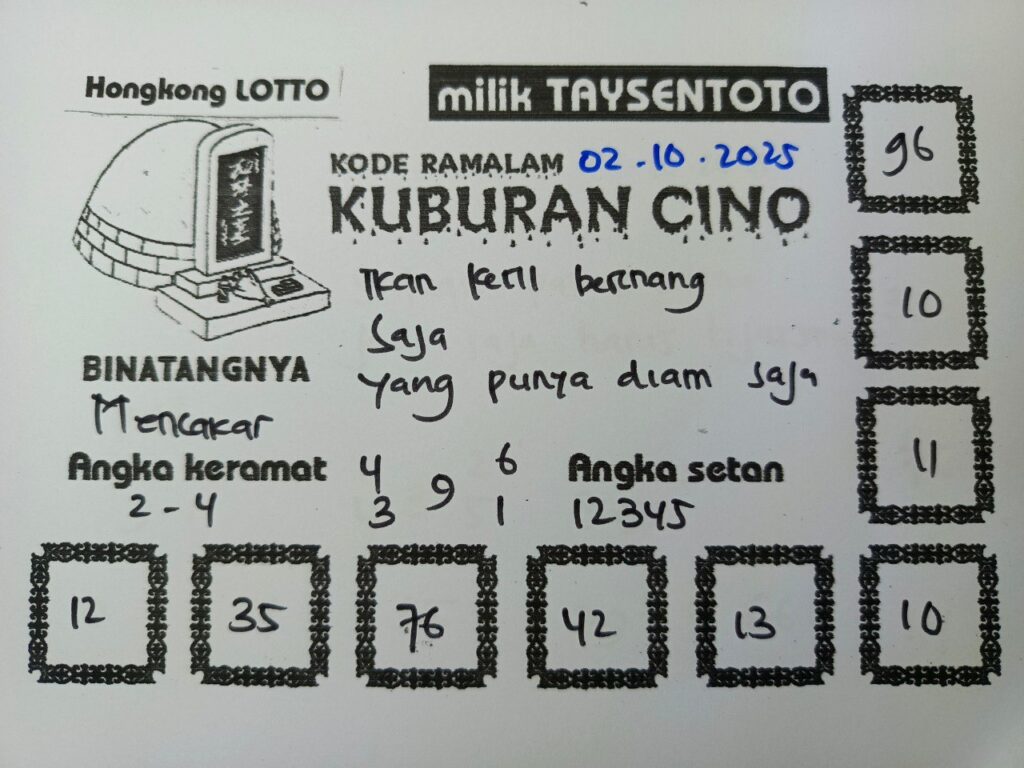 Hongkong LOTTO
milik TAYSENTOTO
KODE RAMALAM 02.10.2025
KUBURAN CINO
Ikan kecil berenang
saja
yang punya diam saja
BINATANGNYA
Mencakar
Angka keramat
2 - 4
4 6
9
3 1
Angka setan
12345
96
10
11
12 35 76 42 13 10